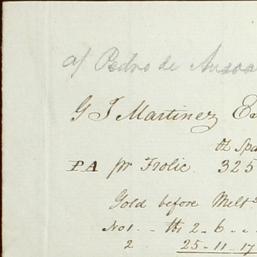 of Pedro de Ansoa
G J Martinez E
℔ Spa
PA pr Frolic 325
Gold before Melt
No 1 . - ℔ 2 - 6 - .
2 25 - 11 - 17